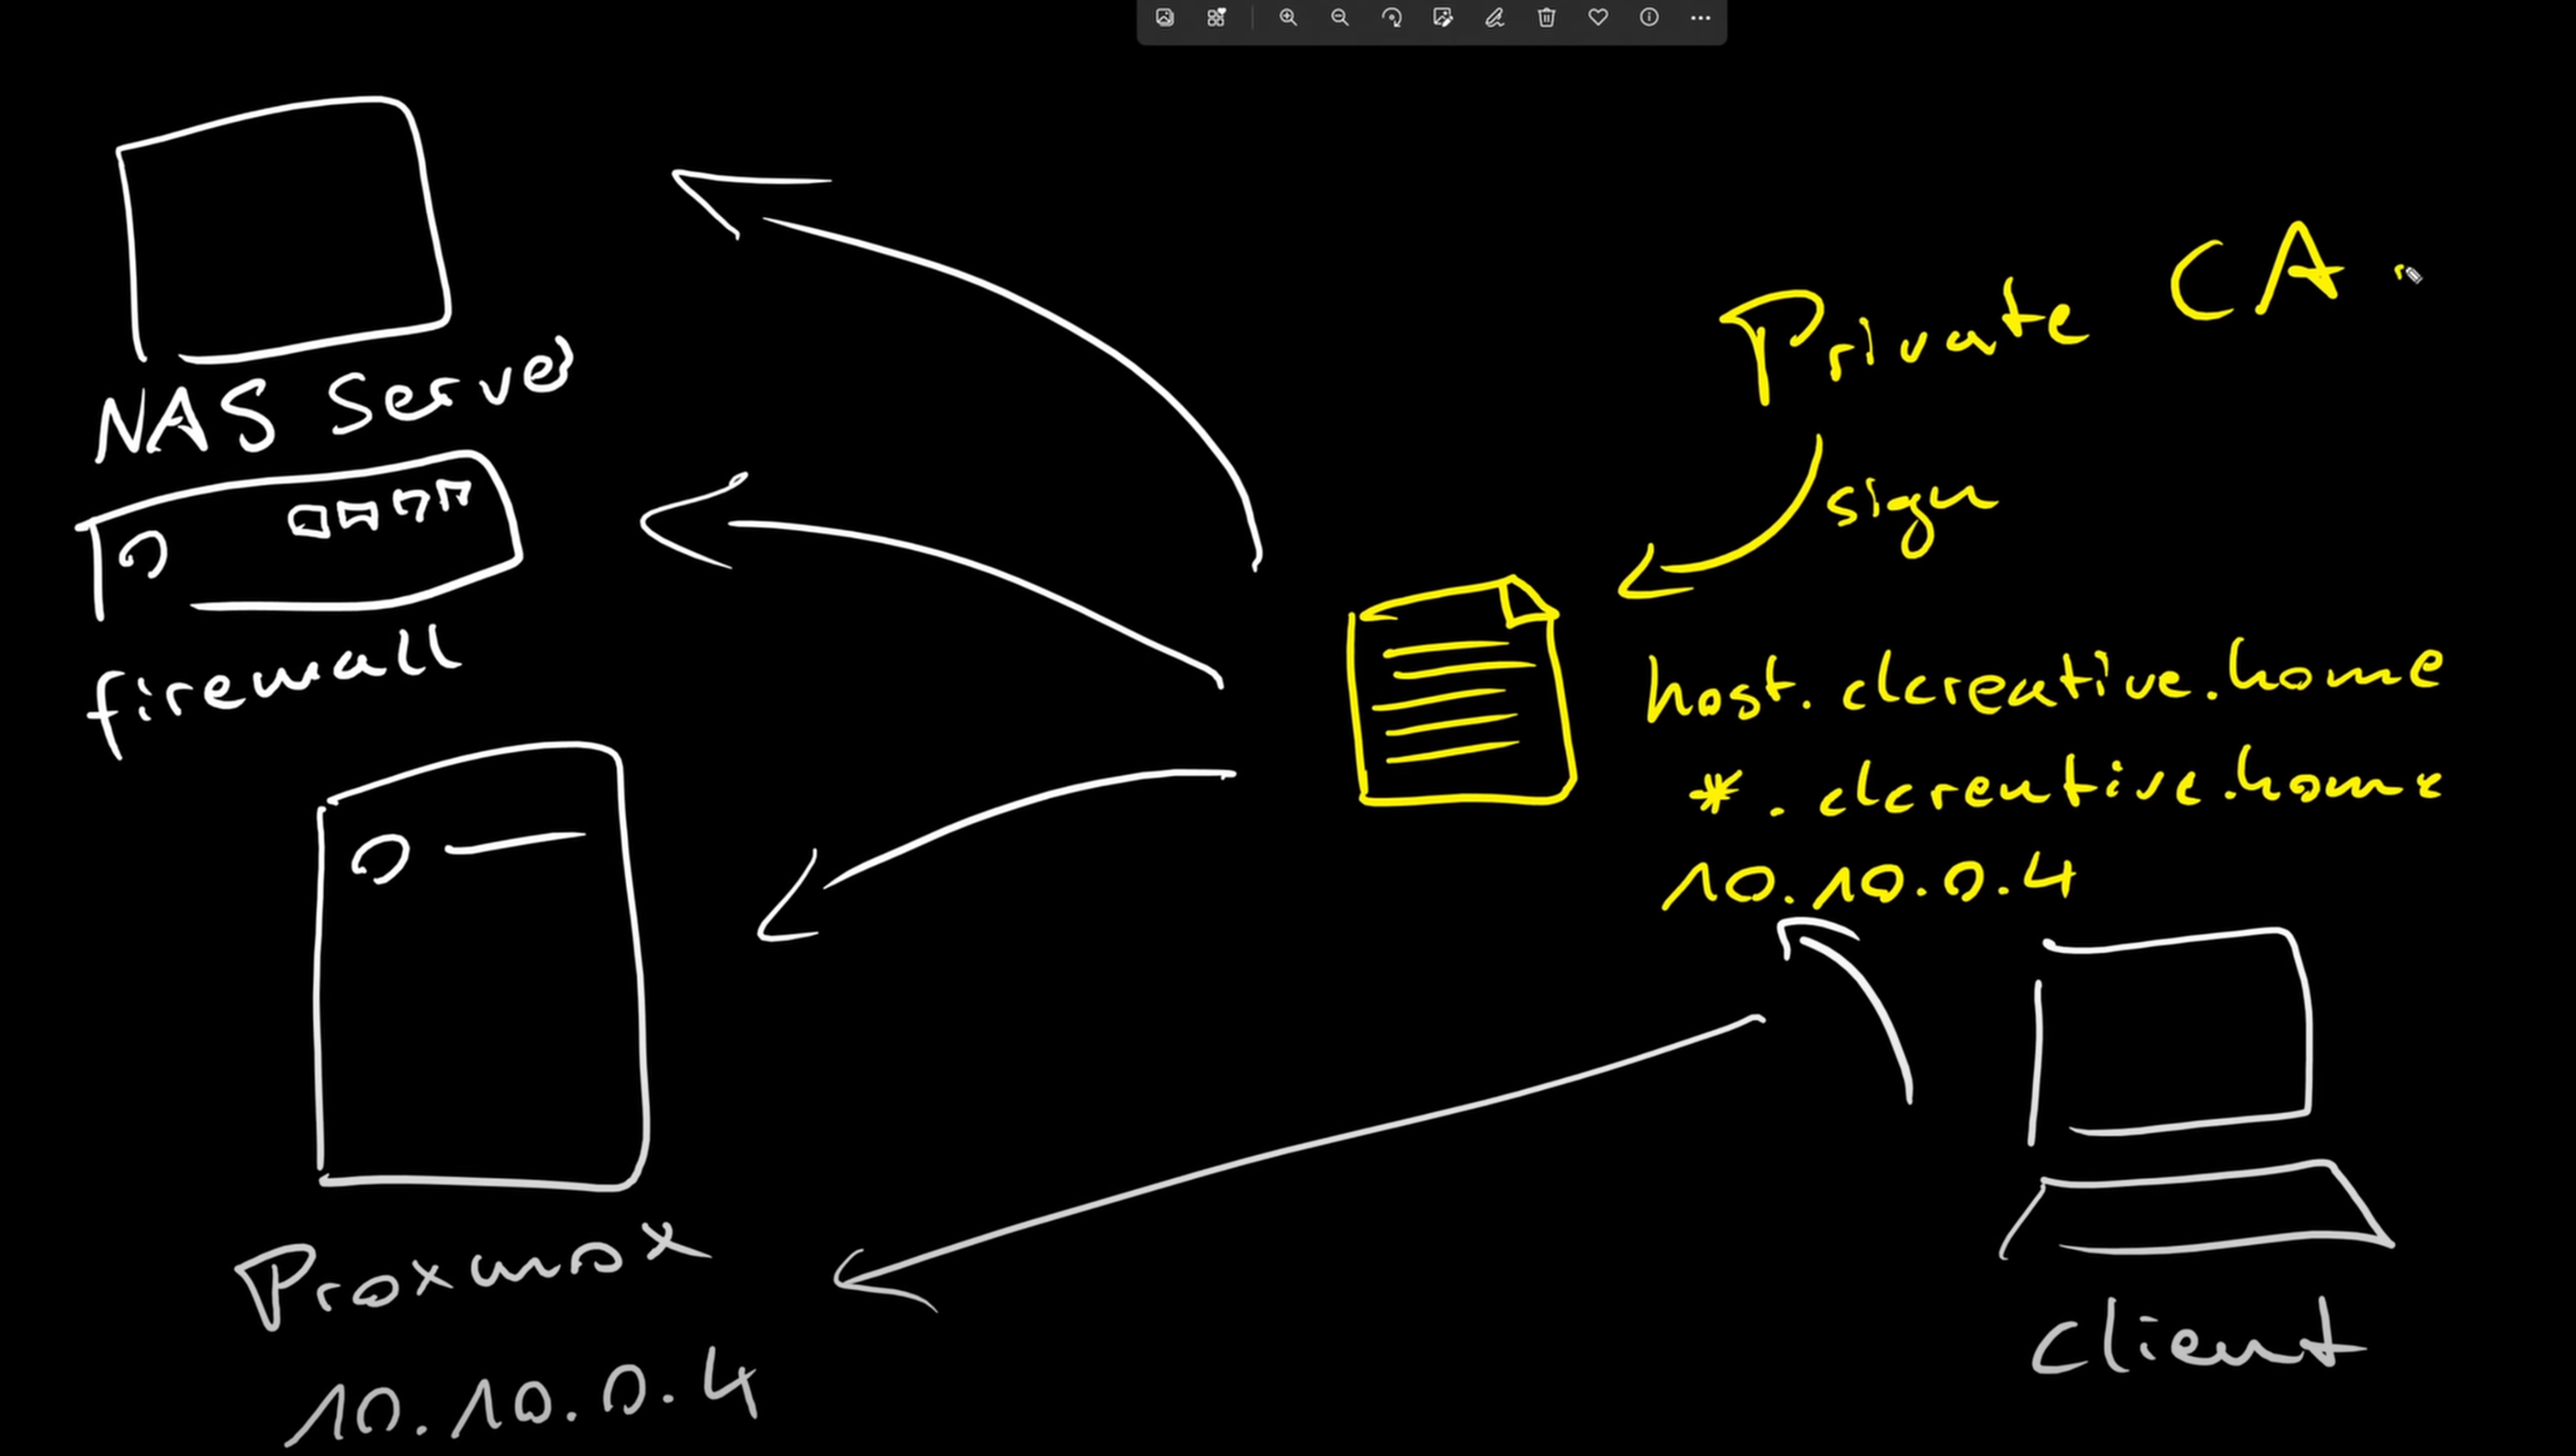 NAS Server
firewall
Proxmox
10.10.0.4
Private CA
sign
host.clcreative.home
*.clcreative.home
10.10.0.4
client